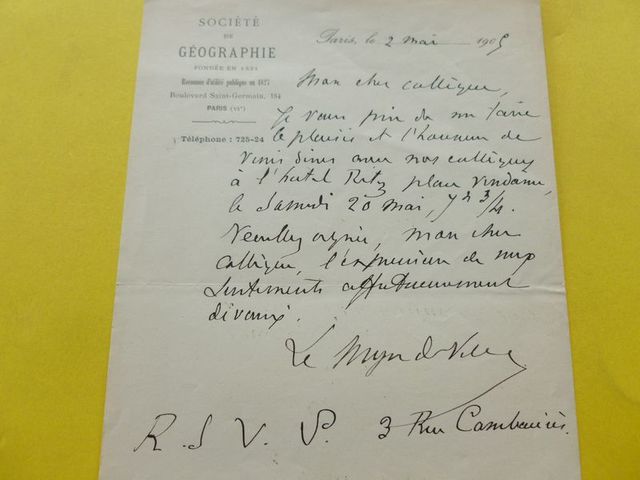 SOCIÉTÉ
DE
GÉOGRAPHIE
FONDÉE EN 1821
Reconnue d'utilité publique en 1827
Boulevard Saint-Germain, 184
PARIS (VIe)
Téléphone : 725-24
Paris, le 2 mai 1905
Mon cher collègue,
Je vous prie de me faire
le plaisir et l'honneur de
venir dîner avec nos collègues
à l'hôtel Ritz place Vendôme,
le Samedi 20 mai, 7h 3/4.
Veuillez agréer, mon cher
collègue, l'expression de mes
sentiments affectueusement
dévoués.
Le Myre de Vilers
R. S V. P. 3 Rue Cambacérès.